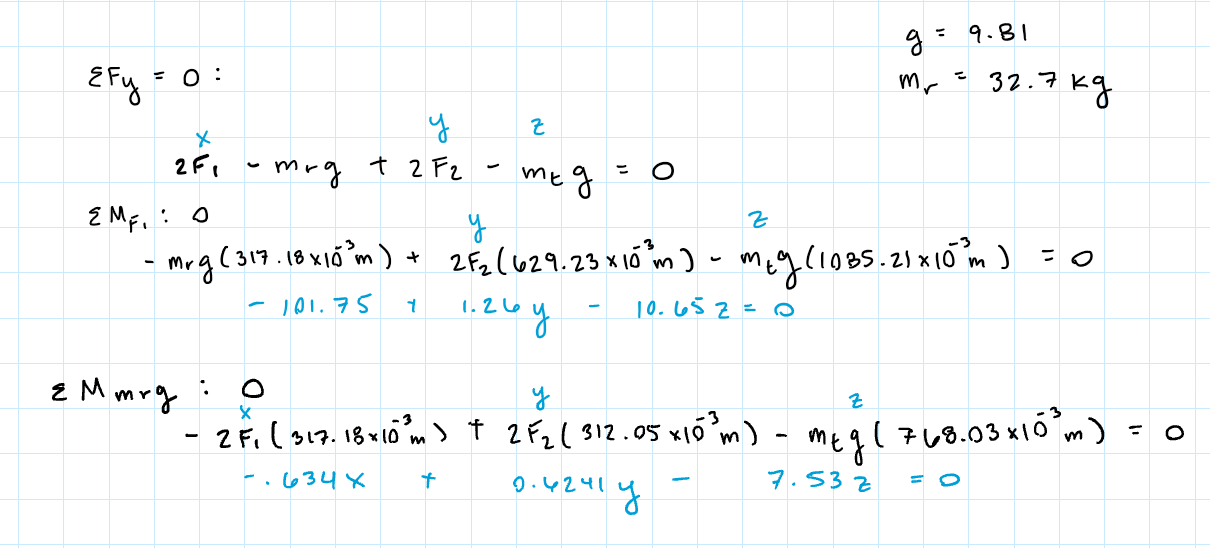 g = 9.81
ΣFy = 0 :
mr = 32.7 kg
x y z
2F₁ - mrg + 2F₂ - mtg = 0
ΣM_F₁ : 0
y z
- mrg(317.18x10⁻³m) + 2F₂(629.23x10⁻³m) - mtg(1085.21x10⁻³m) = 0
- 101.75 + 1.26y - 10.65z = 0
ΣMmrg : 0
x y z
- 2F₁(317.18x10⁻³m) + 2F₂(312.05x10⁻³m) - mtg(768.03x10⁻³m) = 0
-.634x + 0.6241y - 7.53z = 0